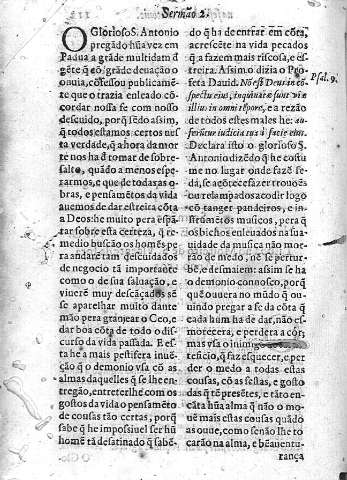 Sermão 2.
O Glorioso S. Antonio
pregãdo hũa vez em
Padua a grãde multidam d
gẽte q̃ cõ grãde deuação o
ouuia, cõfessou publicamẽ
te que o trazia enleado cõ-
cordar nossa fe com nosso
descuido, porq̃ sẽdo assim,
q̃ todos estamos certos nes
ta verdade, q̃ a hora da mor
te nos ha d̃ tomar de sobre-
salto, quãdo a menos espe-
rarmos, e que de todas as o
bras, e pensamẽtos da vida
auemos de dar estreita cõta
a Deos: he muito pera espã-
tar sobre esta certeza, q̃ re-
medio buscão os homẽs pe
ra andarẽ tam descuidados
de negocio tã importante
como o de sua saluação, e
viuerẽ muy descãçados sẽ
se aparelhar muito dante
mão pera grãgear o Ceo, e
dar boa cõta de todo o dis-
curso da vida passada. E es-
ta he a mais pestifera inuẽ-
ção q̃ o demonio vsa cõ as
almas daquelles q̃ se lhe en-
tregão, entreterlhe com os
gostos da vida o pensamẽto
de cousas tão certas, porq̃
sabe que he impossiuel ser hũ
homẽ tã desatinado q̃ sabẽ-
do q̃ ha de entrar em cõta,
acrescẽte na vida pecados
q̃ a fazem mais riscosa, e es-
treira. Assim o dizia o Pro-
feta Dauid. Nõ est Deus in cõ-
spectu eius, inquinatæ sunt viæ
illius in omni tẽpore, e a rezão
de todos estes males he: au-
feruntur iudicia tua à facie eius.
Psal. 9.
Declara isto o glorioso S.
Antonio dizẽdo q̃ he costu
me no lugar onde fazẽ se-
da, se acõtece fazer trouões
ou relampados acodir logo
cõ tanger pandeiros, e in-
strumẽtos musicos, pera q̃
os bichinhos enleuados na su
auidade da musica não mor
rão de medo, nẽ se pertur-
bẽ, e desmaiem: assim se ha
o demonio connosco, porq̃
quẽ ouuera no mũdo q̃ ou-
uindo pregar a fe da cõta q̃
cada hum ha de dar, não es-
morecera, e perdera a côr,
mas vsa o inimigo
teficio, q̃ faz esquecer, e per
der o medo a todas estas
cousas, cõ as festas, e gosto
das q̃ tẽ presẽtes, e tãto en-
cãta hũa alma q̃ não o mo-
uẽ mais estas cousas quãdo
as ouue, como se não lhe to
carão na alma, e bẽauentu-
rança